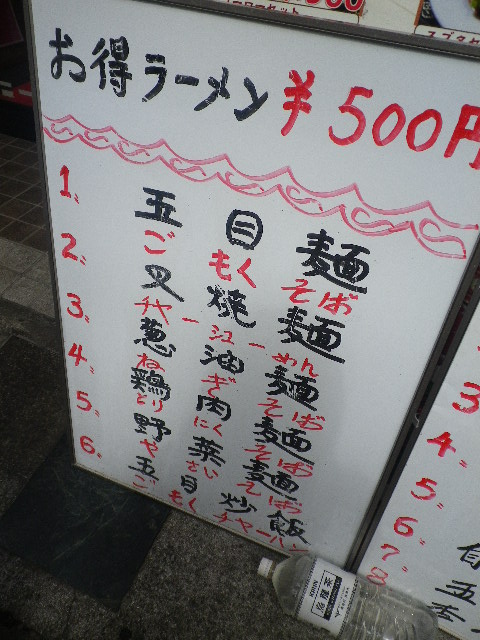 お得ラーメン ¥500円
1. 五目麺
ごもくそば
2. 叉焼麺
チャーシューめん
3. 葱油麺
ねぎそば
4. 鶏肉麺
とりにくそば
5. 野菜麺
やさいそば
6. 五目炒飯
ごもくチャーハン
3.
4.
5.
6.
7.
8.
五